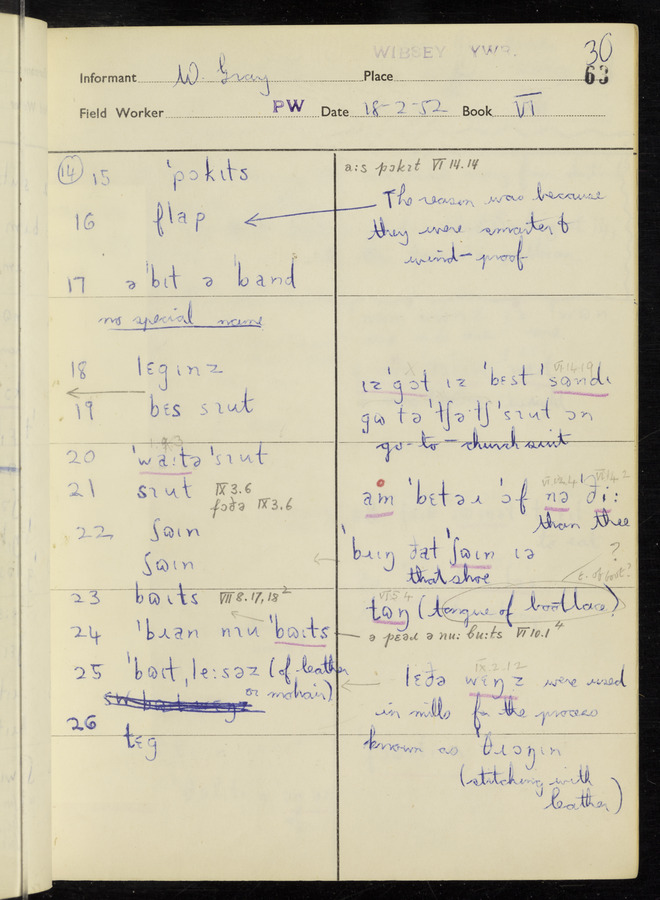 WIBSEY YWR. 30
Informant W. Gray Place 63
Field Worker PW Date 18-2-52 Book VI
(14) 15 ˈpɔkɪts
16 flap
17 ə ˈbɪt ə ˈband
no special name
18 lɛgɪnz
19 bɛs sɪut
20 ˈwaːtə ˈsɪut
21 sɪut IX 3.6
fɔðə IX 3.6
22 ʃɷɪn
ʃɷɪn
23 bɷɪts VII 8.17, 18
24 ˈbɹan nɪu ˈbɷɪts
25 ˈbɷɪt ˌleːsəz (of leather
or mohair)
26 tɛg
aːs pɔkɪt VI 14.14
The reason was because
they were smarter &
wind-proof
ɪz ˈgɔt ɪz ˈbɛst ˈsɷndɪ VI 14.19
gɷ tə ˈtʃətʃ ˈsɪut ɔn
go-to-church suit
am ˈbɛtəɹ ˈɔf nə ðiː
than thee
ˈbɹɪŋ ðat ˈʃɷɪn ɪə ?
that shoe
tɷŋ (tongue of bootlace) VI 5.4
ə pɛəɹ ə nuː buːts VI 10.1
lɛðə wɛŋz were used IX 2.12
in mills for the process
known as
(stitching with
leather)